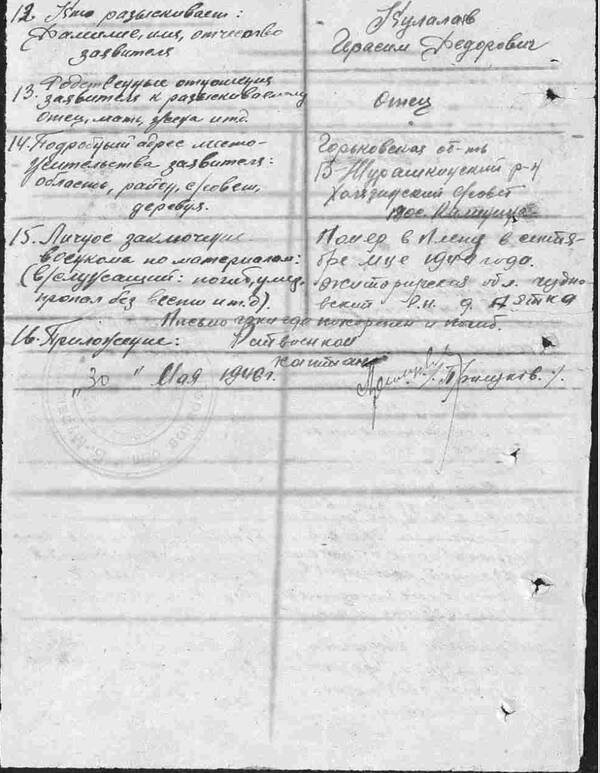 12. Кто разыскивает:
Фамилие, имя, отчество
заявителя
Кулалаев
Герасим Федорович
13. Родственные отношения
заявителя к разыскиваемому
отец, мать, жена и т.д.
Отец
14. Подробный адрес место-
жительства заявителя:
область, район, с/совет,
деревня.
Горьковская об-ть
Б Мурашкинский р-н
Совет
15. Личное заключение
военкома по материалам:
(в/служащий: погиб, умер,
пропал без вести и т.д).
Помер в плену в сентя-
бре м-це 194 года.
Житомирская обл. чудно-
вский р.н. д. Пятка
Письмо где похоронен и погиб.
16. Приложение:
Райвоенком
капитан
"30" Мая 1946г.